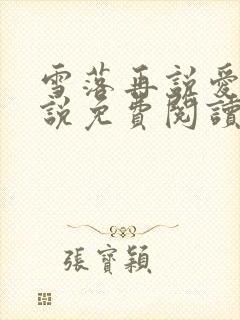 雪落再説愛
説免費閱讀
張寳穎